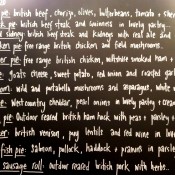 pie: british beef, chorizo, olives, butterbeans, tomato + sherr
pie: british beef steak and Guinness in lovely gravy
kidney: british beef steak and kidney with real ale and
ken pie: free range british chicken and field mushrooms.
er pie: free range british chicken, wiltshire smoked ham +
goats cheese, sweet potato, red onion and roasted garli
room: wild and portabella mushrooms and asparagus, white
e: West country cheddar, pearl onions in lovely parsley + cream
pie: Outdoor reared british ham hock with peas + parsley
er: british venison, puy lentils and red wine in love
fish pie: salmon, pollock, haddock + prawns in parsley
sausage roll: outdoor reared british pork, with herbs.